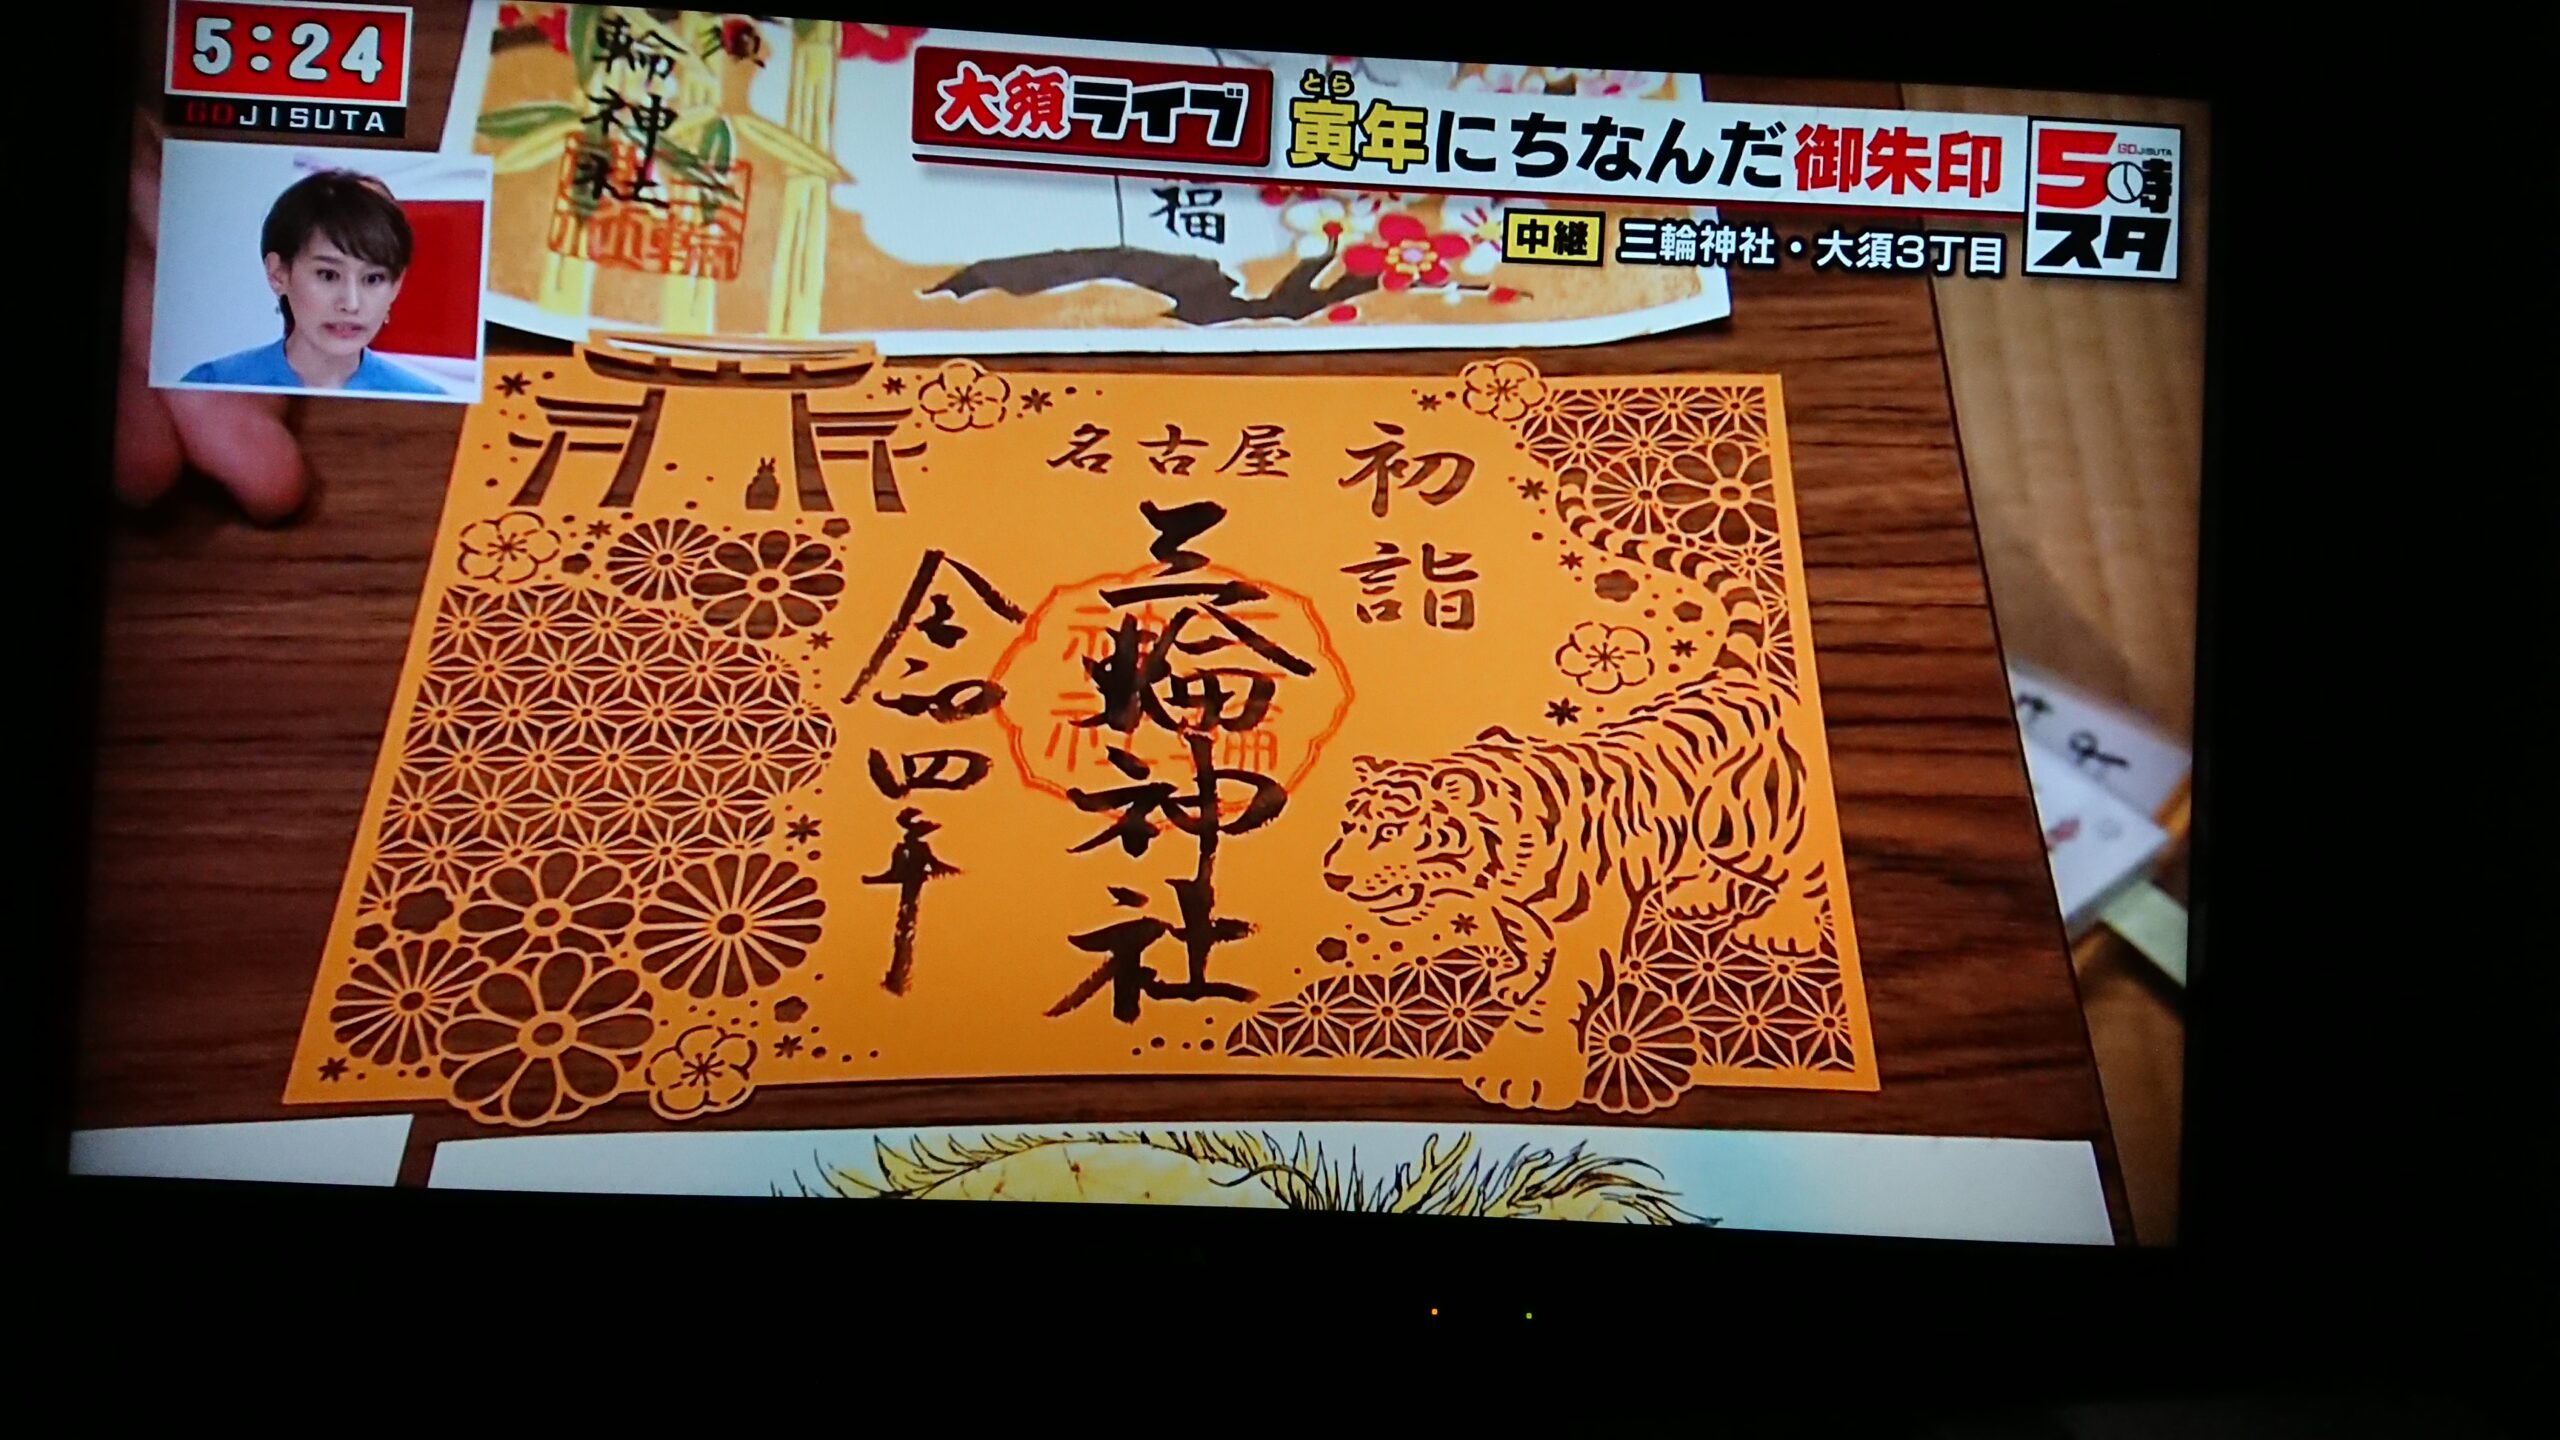 5:24
GOJISUTA
大須ライブ
とら
寅年にちなんだ御朱印
5時スタ
GOJISUTA
中継 三輪神社・大須3丁目
須
輪神社
福
初詣
名古屋
三輪神社
令和四年